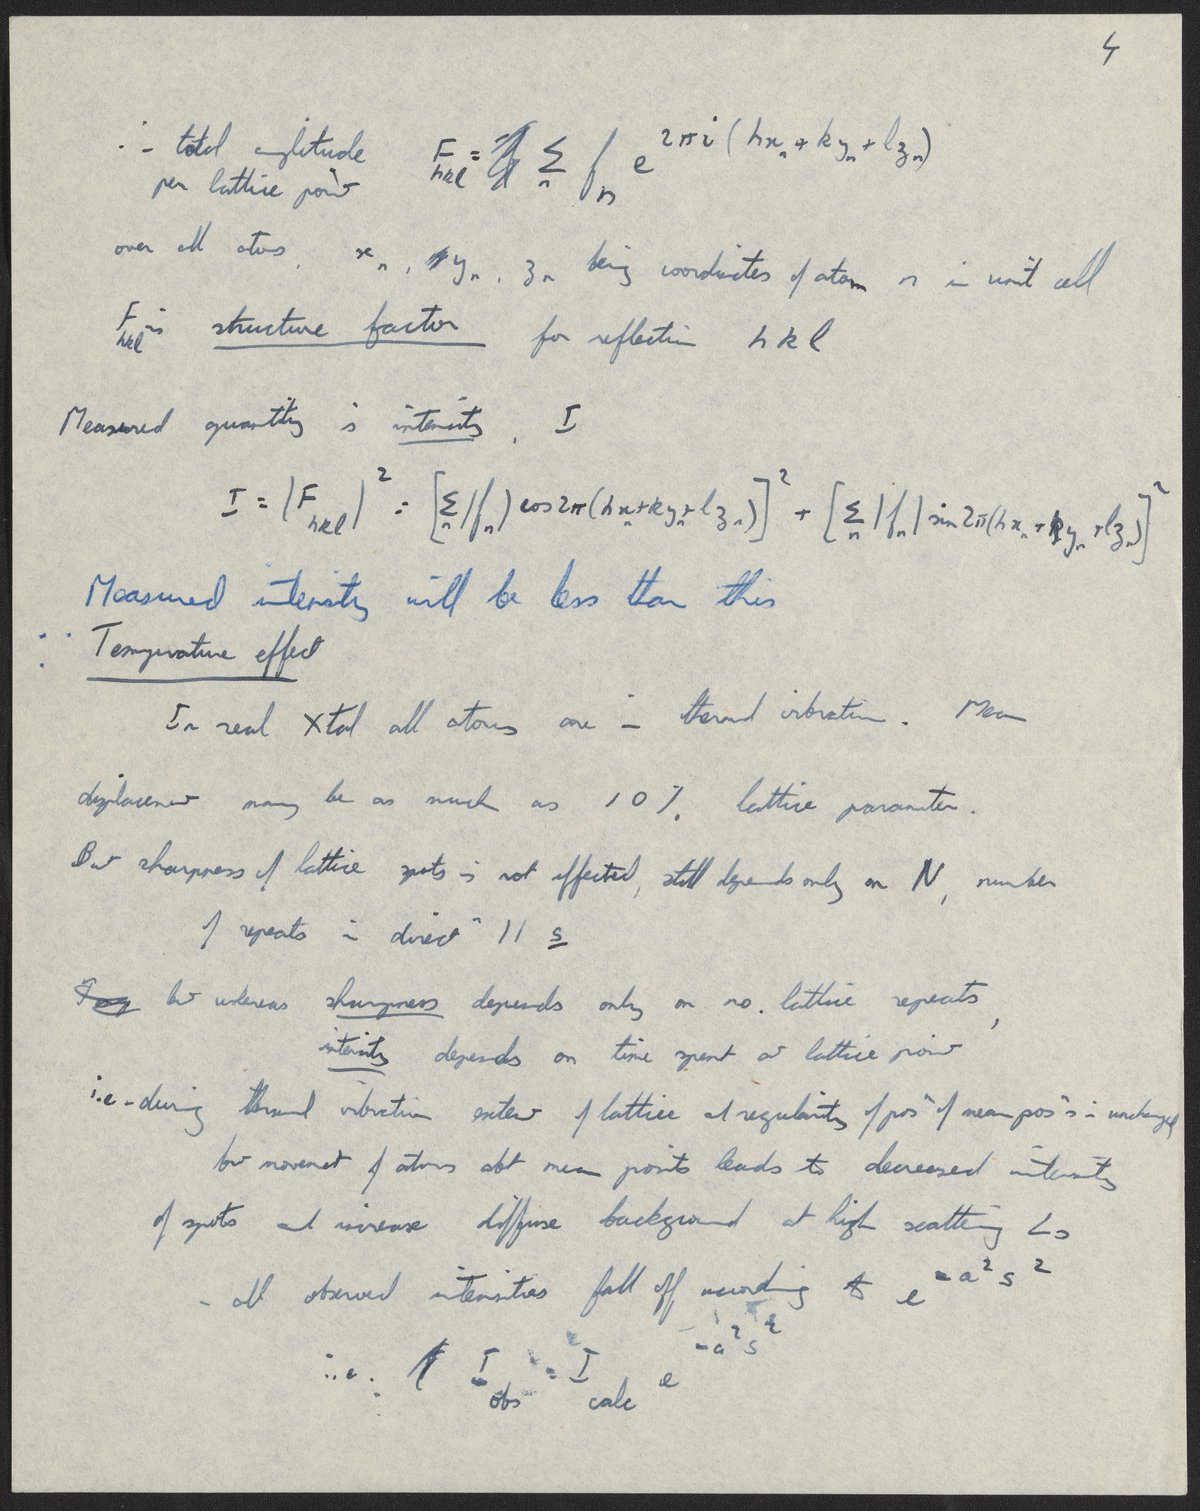 4
∴ – total amplitude F_hkl = Σ_n f_n e^{2πi(hx_n + ky_n + lz_n)}
per lattice point
over all atoms, x_n, y_n, z_n being coordinates of atom n in unit cell
F_hkl is structure factor for reflection hkl
Measured quantity is intensity, I
I = |F_hkl|² = [Σ_n |f_n| cos 2π(hx_n + ky_n + lz_n)]² + [Σ_n |f_n| sin 2π(hx_n + ky_n + lz_n)]²
Measured intensity will be less than this
∵ Temperature effect
In real Xtal all atoms are in thermal vibration. Mean
displacement may be as much as 10% lattice parameter.
But sharpness of lattice spots is not affected, still depends only on N, number
of repeats in directⁿ || s
but whereas sharpness depends only on no. lattice repeats,
intensity depends on time spent at lattice point
i.e – during thermal vibration extent of lattice and regularity of posⁿ of mean posⁿs is unchanged
but movement of atoms abt mean posits leads to decreased intensity
of spots and increase diffuse background at high scattering ∠s
– all observed intensities fall off according to e^{-a²s²}
i.e. I_obs = I_calc e^{-a²s²}